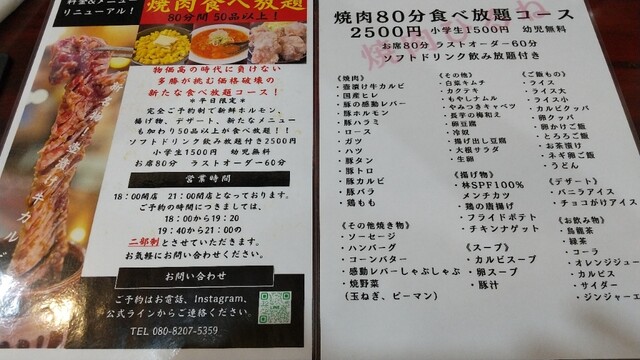 料金&メニュー
リニューアル！
焼肉食べ放題
80分間 50品以上！
新名物！壺漬け牛カルビ
物価高の時代に負けない
多勝が挑む価格破壊の
新たな食べ放題コース！
＊平日限定＊
完全ご予約制で新鮮ホルモン、
揚げ物、デザート、新たなメニュー
も加わり50品以上が食べ放題！！
ソフトドリンク飲み放題付き2500円
小学生1500円 幼児無料
お席80分 ラストオーダー60分
営業時間
18：00開店 21：00閉店となっております。
ご予約の時間につきましては、
18：00から19：20
19：40から21：00の
二部制とさせていただきます。
お気軽にお問い合わせください。
お問い合わせ
ご予約はお電話、Instagram、
公式ラインからご連絡ください。
TEL 080-8207-5359
焼肉80分食べ放題コース
2500円 小学生1500円 幼児無料
お席80分 ラストオーダー60分
ソフトドリンク飲み放題付き
《焼肉》
・壺漬け牛カルビ
・国産ヒレ
・豚の感動レバー
・豚ホルモン
・豚ハラミ
・ロース
・ガツ
・ハツ
・豚タン
・豚トロ
・豚カルビ
・豚バラ
・鶏もも
《その他焼き物》
・ソーセージ
・ハンバーグ
・コーンバター
・感動レバーしゃぶしゃぶ
・焼野菜
（玉ねぎ、ピーマン）
《その他》
・白菜キムチ
・カクテキ
・もやしナムル
・やみつきキャベツ
・長芋の梅和え
・卵豆腐
・冷奴
・揚げ出し豆腐
・大根サラダ
・生卵
《揚げ物》
・林SPF100%
メンチカツ
・鶏の唐揚げ
・フライドポテト
・チキンナゲット
《スープ》
・カルビスープ
・卵スープ
・豚汁
《ご飯もの》
・ライス
・ライス大
・ライス小
・カルビクッパ
・卵クッパ
・卵かけご飯
・とろろご飯
・お茶漬け
・ネギ卵ご飯
・うどん
《デザート》
・バニラアイス
・チョコがけアイス
《お飲み物》
・烏龍茶
・緑茶
・コーラ
・オレンジジュー
・カルピス
・サイダー
・ジンジャーエ